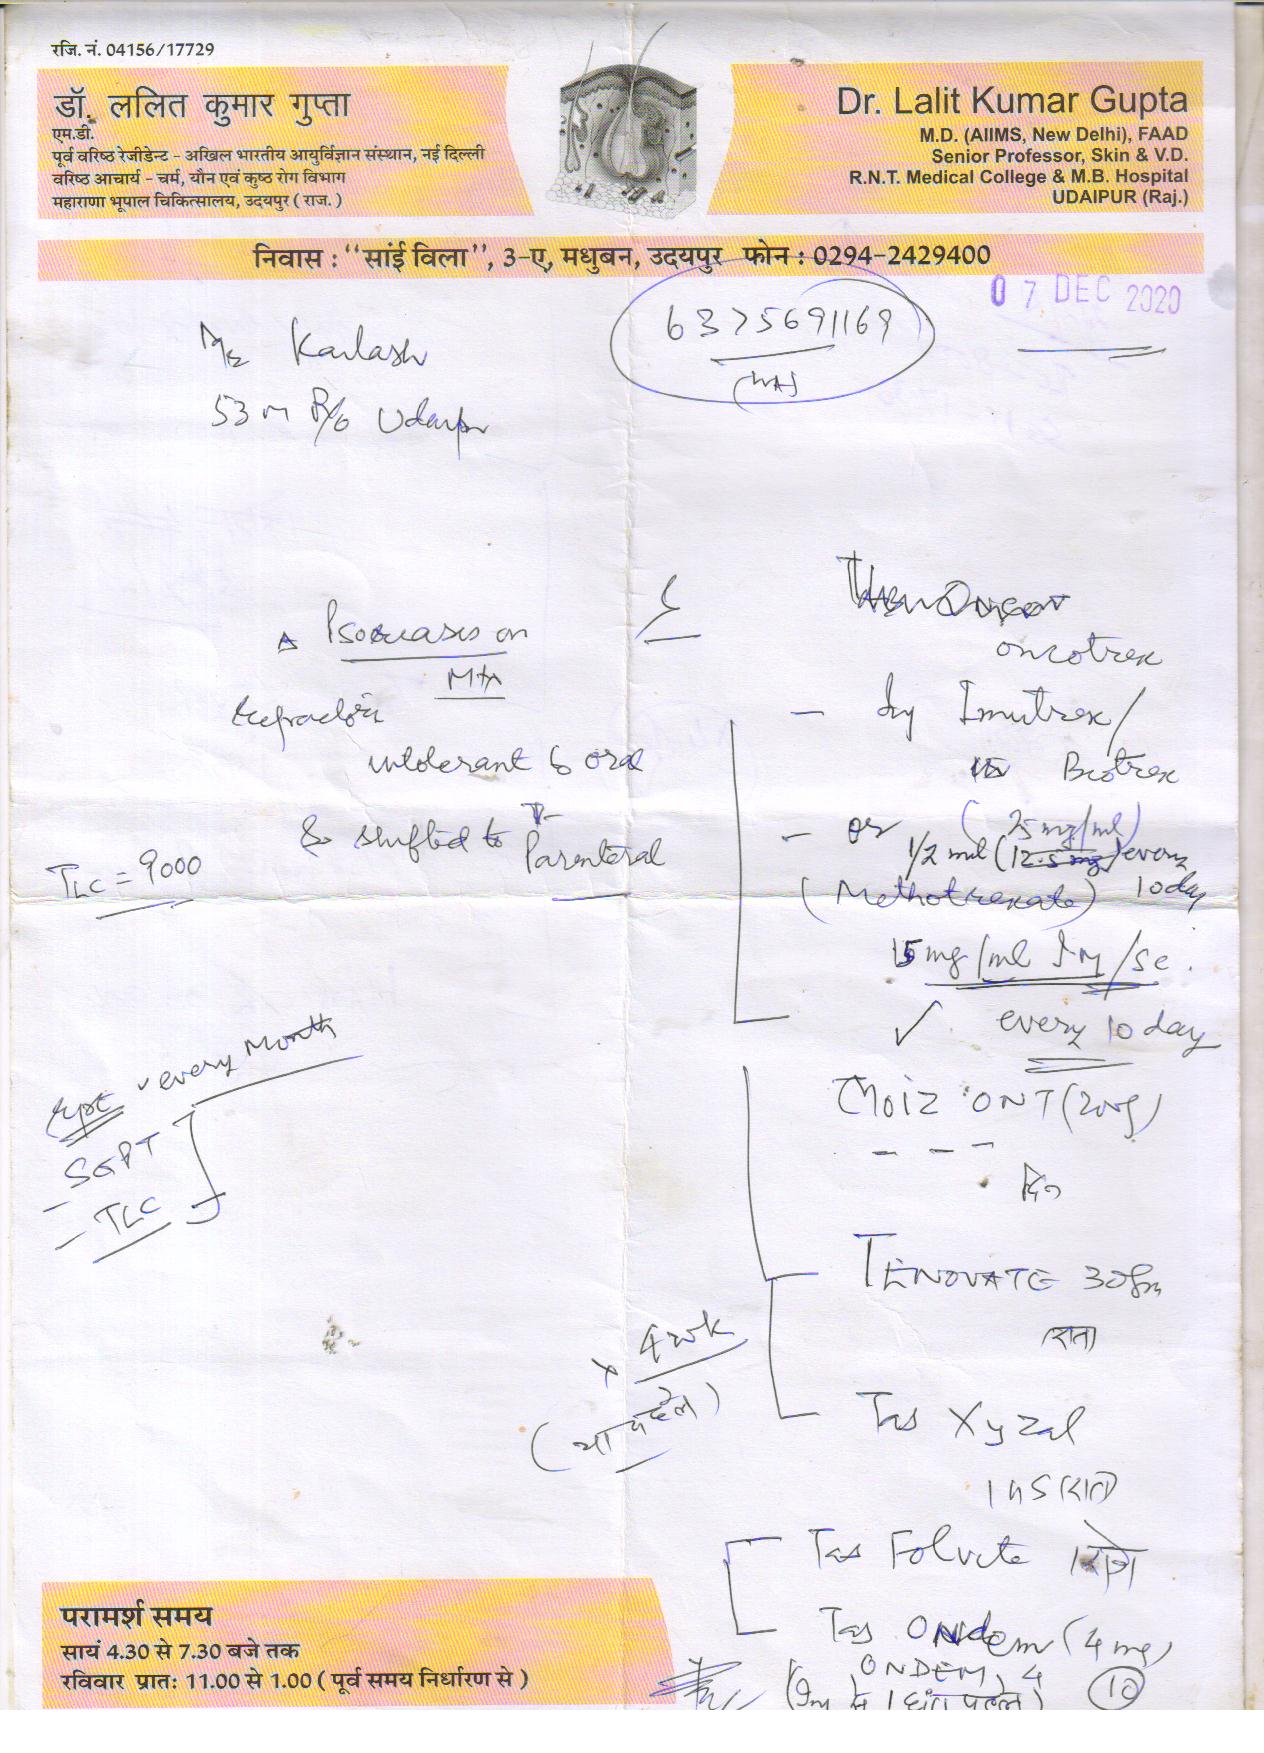 रजि. नं. 04156/17729
डॉ. ललित कुमार गुप्ता
एम.डी.
पूर्व वरिष्ठ रेजीडेन्ट - अखिल भारतीय आयुर्विज्ञान संस्थान, नई दिल्ली
वरिष्ठ आचार्य - चर्म, यौन एवं कुष्ठ रोग विभाग
महाराणा भूपाल चिकित्सालय, उदयपुर ( राज. )
Dr. Lalit Kumar Gupta
M.D. (AIIMS, New Delhi), FAAD
Senior Professor, Skin & V.D.
R.N.T. Medical College & M.B. Hospital
UDAIPUR (Raj.)
निवास : ‘‘सांई विला’’, 3-ए, मधुबन, उदयपुर फोन : 0294-2429400
07 DEC 2020
6375691169
(WA)
Kailash
53 M R/o Udaipur
Psoriasis on
Mtx
intolerant to oral
& shifted to
Parenteral
TLC = 9000
oncotrex
- Inj Imutrex/
Biotrex
- or (25 mg/ml)
1/2 ml (12.5 mg) every
10 day
(Methotrexate)
15 mg/ml IM/SC.
every 10 day
every Month
- SGPT
- TLC
Moiz ONT (20g)
TENOVATE 30gm
रात
x 4 wk
Tab Xyzal
रात
Tab Folvite
Tab Ondem (4 mg)
ONDEM 4
10
परामर्श समय
सायं 4.30 से 7.30 बजे तक
रविवार प्रातः 11.00 से 1.00 ( पूर्व समय निर्धारण से )